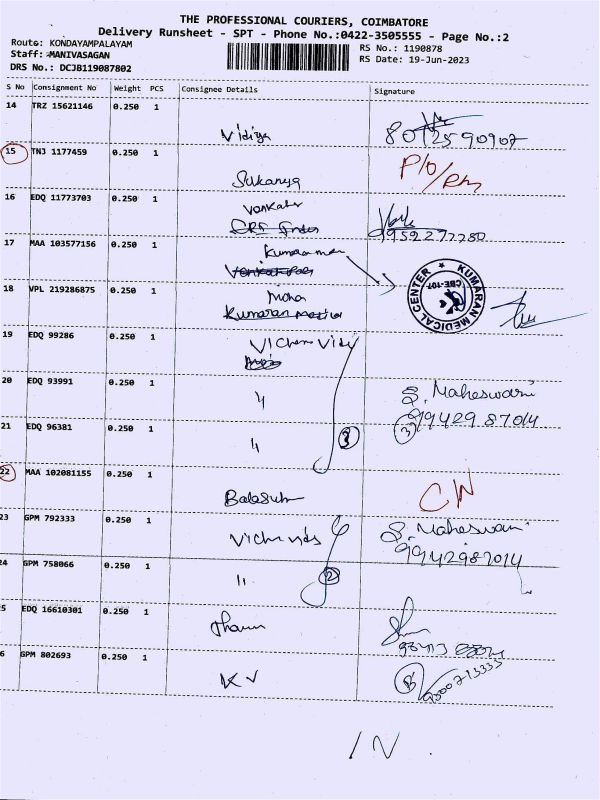 THE PROFESSIONAL COURIERS, COIMBATORE
Delivery Runsheet - SPT - Phone No.:0422-3505555 - Page No.:2
Route: KONDAYAMPALAYAM
RS No.: 1190878
Staff: MANIVASAGAN
RS Date: 19-Jun-2023
DRS No.: DCJB119087802
S No Consignment No Weight PCS Consignee Details Signature
14 TRZ 15621146 0.250 1
Vidiya 8012590907
15 TNJ 1177459 0.250 1
Sukanya P/O/
16 EDQ 11773703 0.250 1
9952277280
17 MAA 103577156 0.250 1
KUMARAN MEDICAL CENTER
CBE-107
18 VPL 219286875 0.250 1
Mohan
Kumaran
19 EDQ 99286 0.250 1
20 EDQ 93991 0.250 1
〃 S. Maheswari
9942987014
3
21 EDQ 96381 0.250 1
〃 3
22 MAA 102081155 0.250 1
CN
23 GPM 792333 0.250 1
S. Maheswari
9942987014
24 GPM 758066 0.250 1
〃 2
5 EDQ 16610301 0.250 1
6 GPM 802693 0.250 1
KV